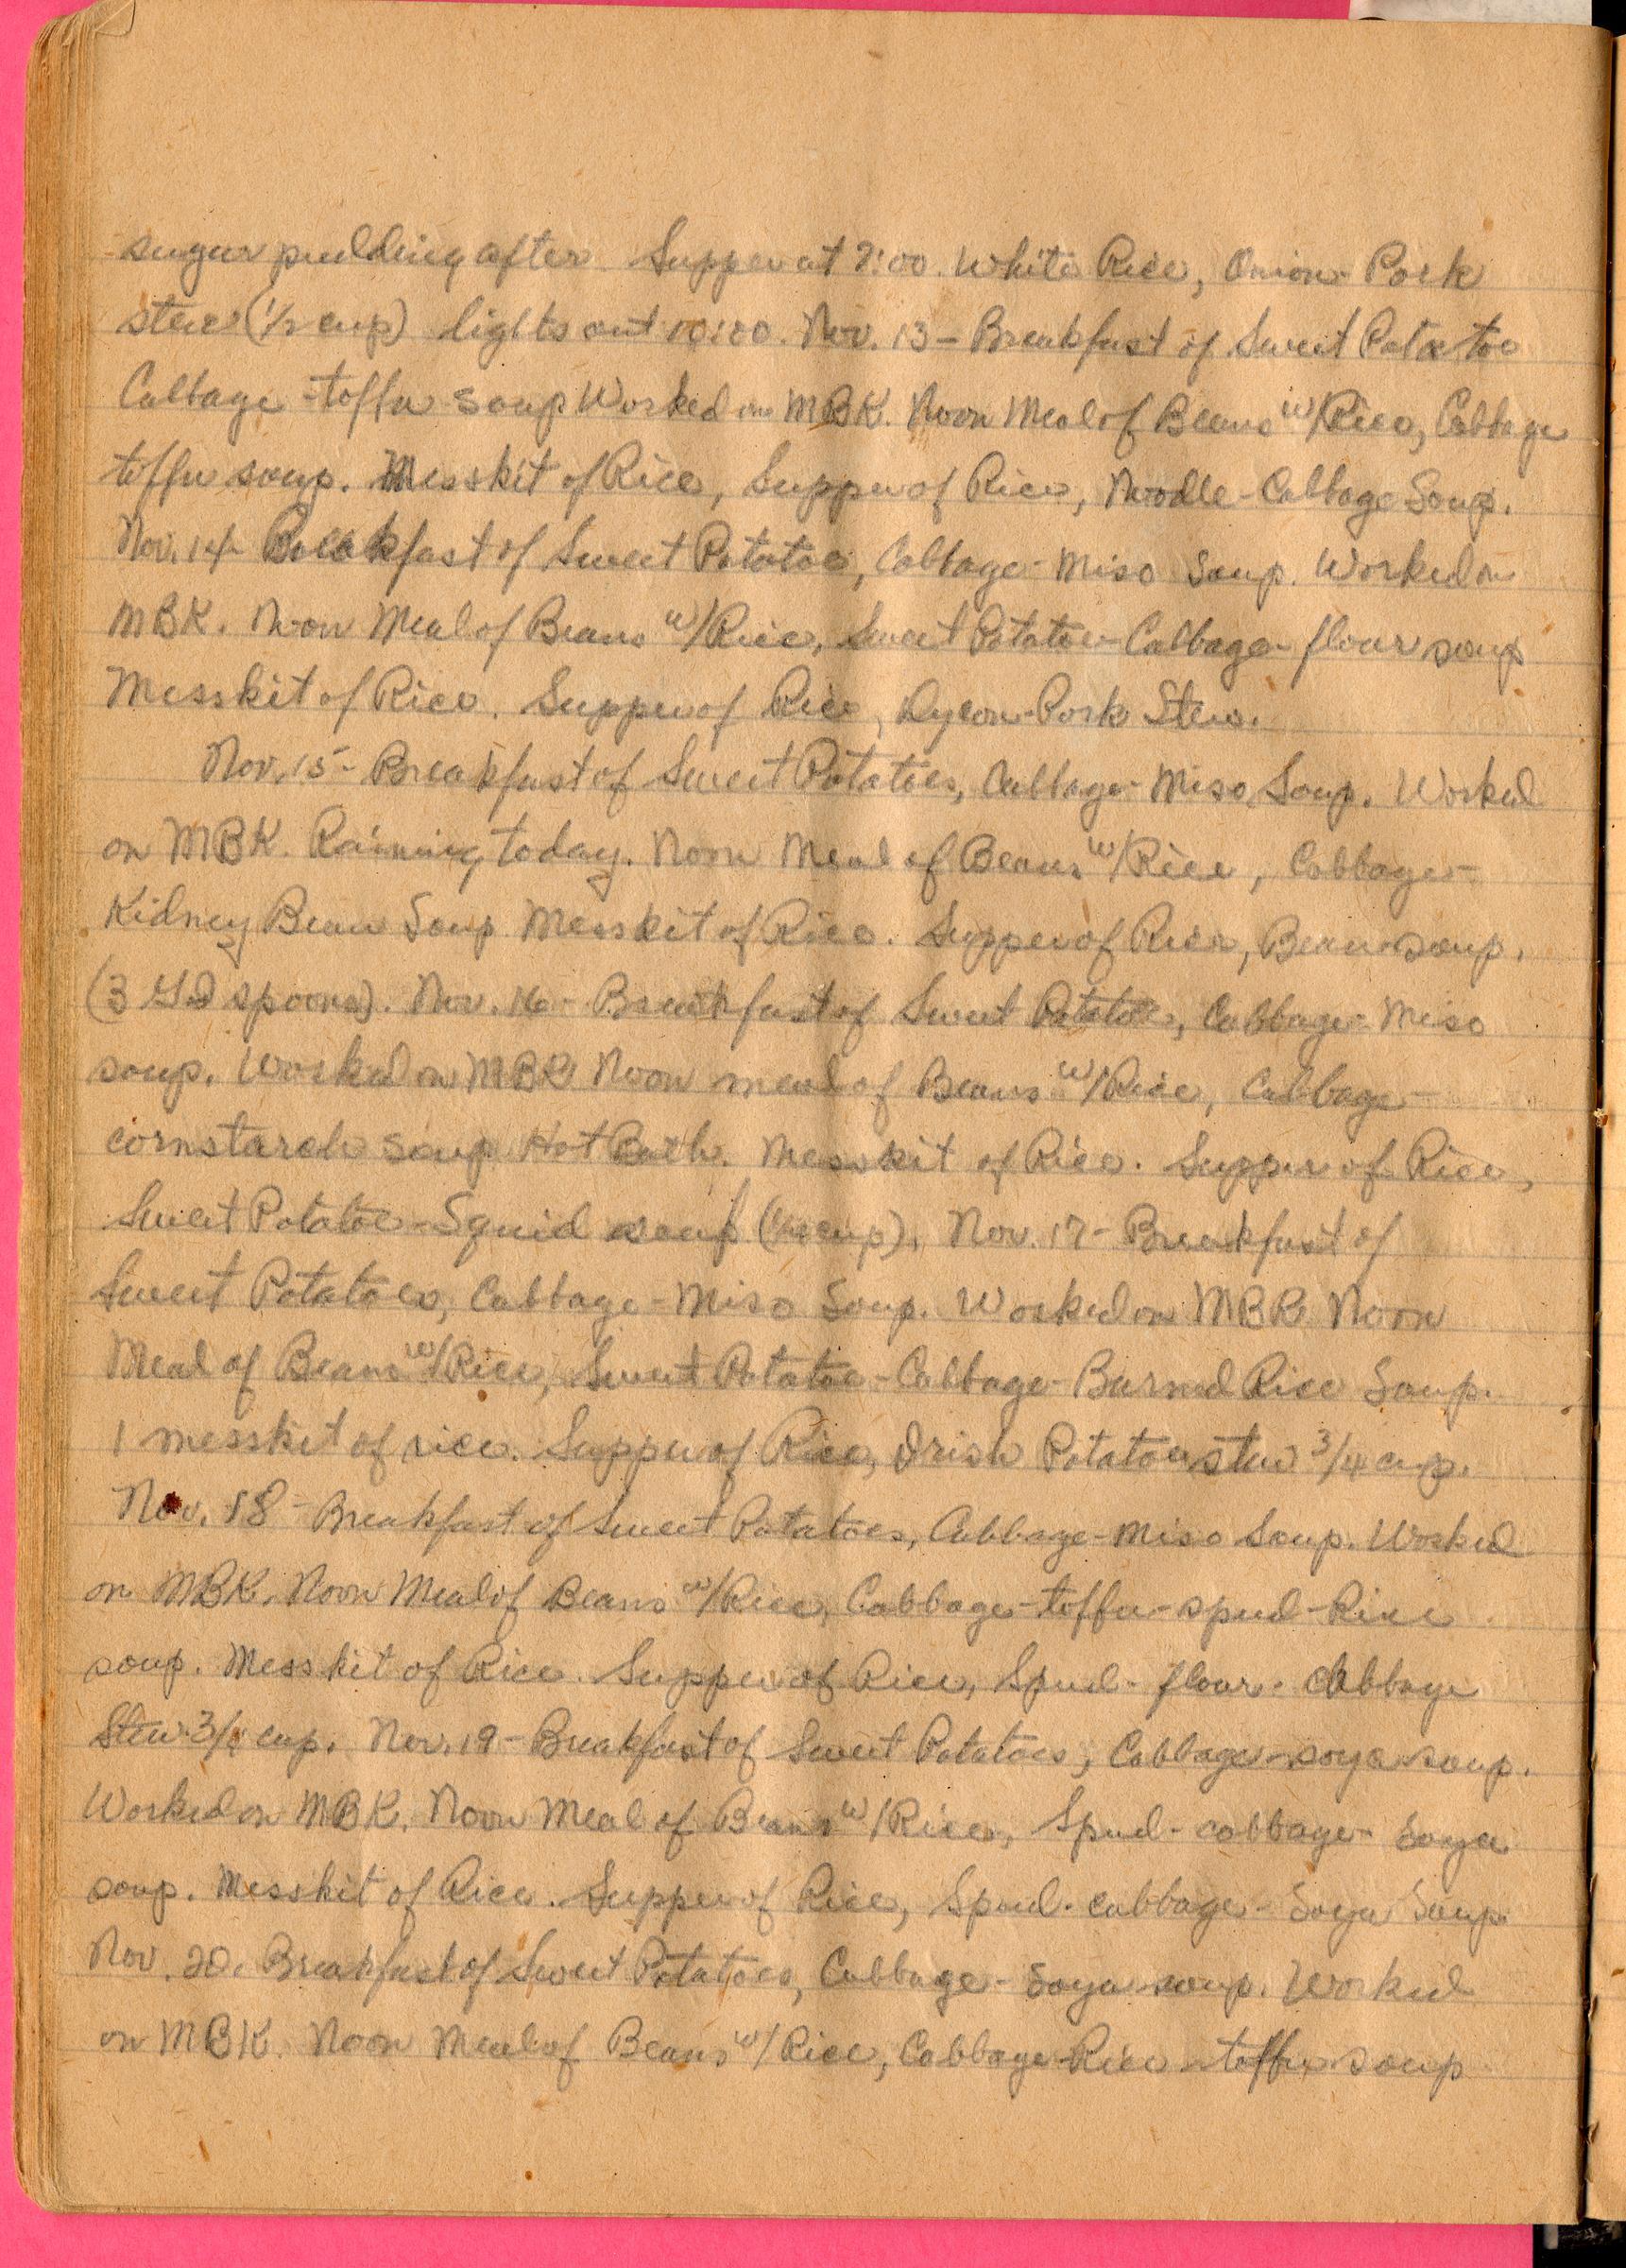 sugar pudding after. Supper at 7:00. White Rice, Onion-Pork
stew (1/2 cup) lights out 10:00. Nov. 13 - Breakfast of Sweet Potatoe
Cabbage - toffu soup Worked on MBK. Noon Meal of Beans w/Rice, Cabbage
toffu soup. Messkit of Rice, Supper of Rice, Noodle-Cabbage Soup.
Nov. 14 - Breakfast of Sweet Potatoe, Cabbage-Miso Soup. Worked on
MBK. Noon Meal of Beans w/Rice, Sweet Potatoe-Cabbage-flour soup
Messkit of Rice. Supper of Rice, Dycon-Pork Stew.
Nov. 15 - Breakfast of Sweet Potatoes, Cabbage-Miso Soup. Worked
on MBK. Raining today. Noon Meal of Beans w/Rice, Cabbage-
Kidney Bean Soup Messkit of Rice. Supper of Rice, Bean soup.
(3 spoons). Nov. 16 - Breakfast of Sweet Potatoe, Cabbage-Miso
soup. Worked on MBK Noon meal of Beans w/Rice, Cabbage-
cornstarch soup Hot Bath. Messkit of Rice. Supper of Rice,
Sweet Potatoe-Squid soup (1/2 cup). Nov. 17 - Breakfast of
Sweet Potatoes, Cabbage-Miso Soup. Worked on MBK Noon
Meal of Beans w/Rice, Sweet Potatoe-Cabbage-Burned Rice Soup.
1 messkit of rice. Supper of Rice, Irish Potatoe stew 3/4 cup.
Nov. 18 - Breakfast of Sweet Potatoes, Cabbage-Miso Soup. Worked
on MBK. Noon Meal of Beans w/Rice, Cabbage-toffu-spud-Rice
soup. Messkit of Rice. Supper of Rice, Spud-flour-Cabbage
Stew 3/4 cup. Nov. 19 - Breakfast of Sweet Potatoes, Cabbage-soya soup.
Worked on MBK. Noon Meal of Beans w/Rice, Spud-cabbage-Soya
soup. Messkit of Rice. Supper of Rice, Spud-cabbage-Soya Soup
Nov. 20. Breakfast of Sweet Potatoes, Cabbage-Soya soup. Worked
on MBK. Noon Meal of Beans w/Rice, Cabbage-Rice-toffu soup